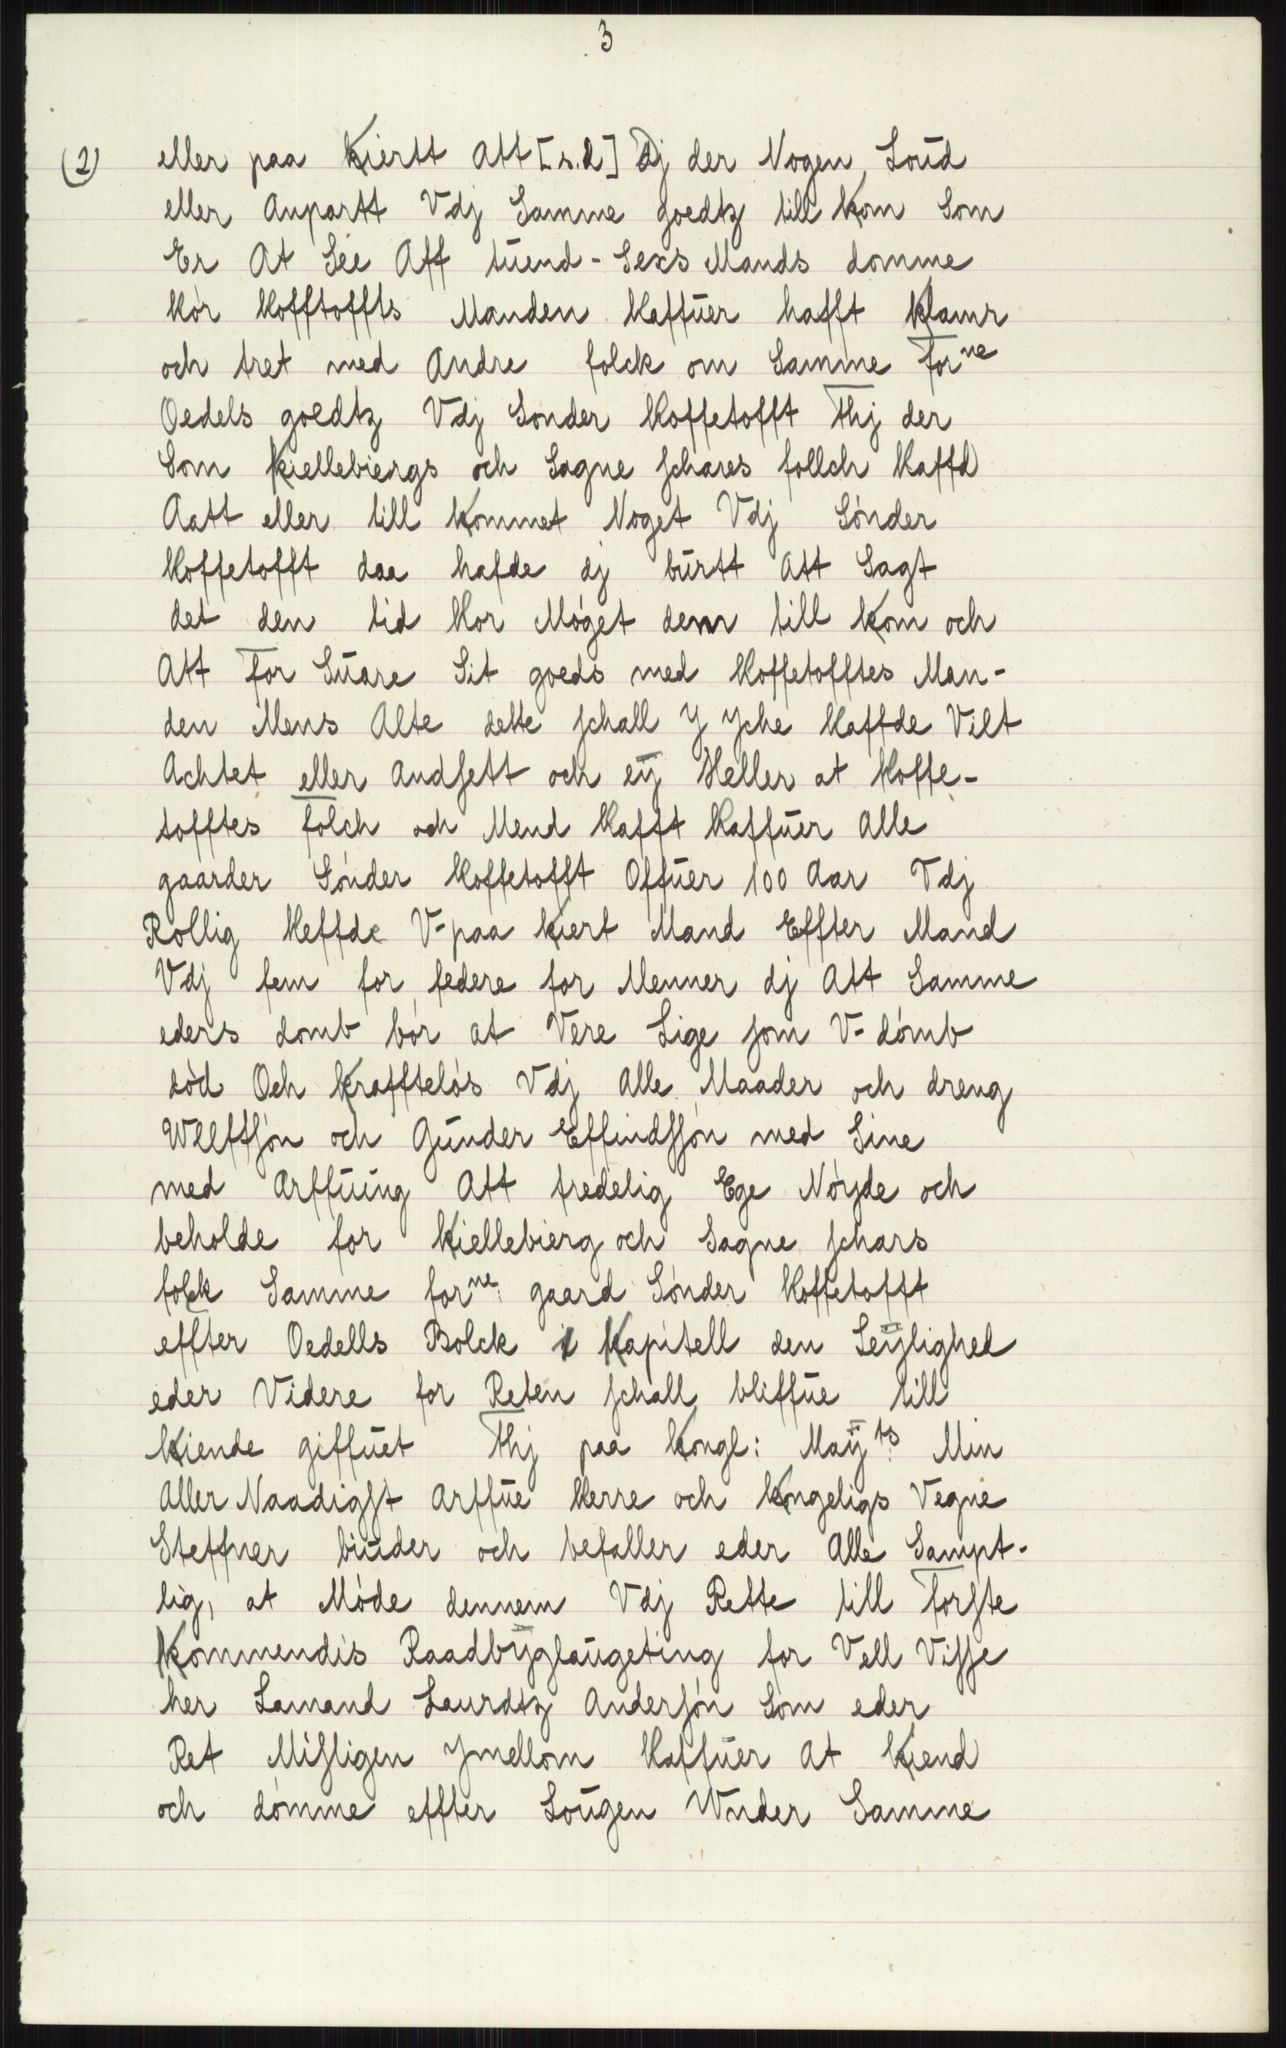 3
(2) eller paa kiertt Att [s.d] Dj der Nogen Loud
eller Anpartt Vdj Samme goedtz till kom Som
Er At See Aff tuend-Sexs Mands domme
Hór Hofftoffts Manden Haffuer hafft klamr
och tret med Andre folck om Samme Forne
Oedels goedtz Vdj Sonder Hoffetofft Thj der
Som kiellebiergs och Sagne schares follch Haffd
Aatt eller till kommet Noget Vdj Sónder
Hoffetofft daa hafde dj bürtt Att Sagt
det den tid Hor Móget dem till kom och
Att For Suare Sit goeds med Hoffetofftes Man-
den Mens Alte dette schall Y Yche Haffde Vilt
Achtet eller Andsett och eÿ Heller at Hoffe-
tofftes Folch och Mend Hafft Haffuer Alle
gaarder Sónder Hoffetofft Offuer 100 Aar Vdj
Rollig Heffde V-paa kiert Mand Effter Mand
Vdj fem for federe for Menner dj Att Samme
eders domb bór at Vere Lige som V-dómb
dód Och kraffteлós Vdj Alle Maader och dreng
Wllffsjón och Gunder Effindssjón med Sine
med Arffuing Att fredelig Ege Nóyde och
beholde for kiellebierg och Sagne schars
folck Samme forne: gaard Sónder Hoffetofft
effter Oedells Bolck i kapitell den Leÿlighed
eder Videre for Reten schall bliffue till
kiende giffuet Thj paa kongl: Maÿts Min
Aller Naadigst Arffue Herre och kongeligs Vegne
Steffner biuder och befaller eder Alle Sampt-
lig, at Móde dennem Vdj Rette till Forste
kommendis Raadbÿglaugeting for Vell Visse
her Lamand Laurdtz Andersón Som eder
Ret Misligen Ymellom Haffuer At kiend
och dómme effter Lougen Wnder Samme